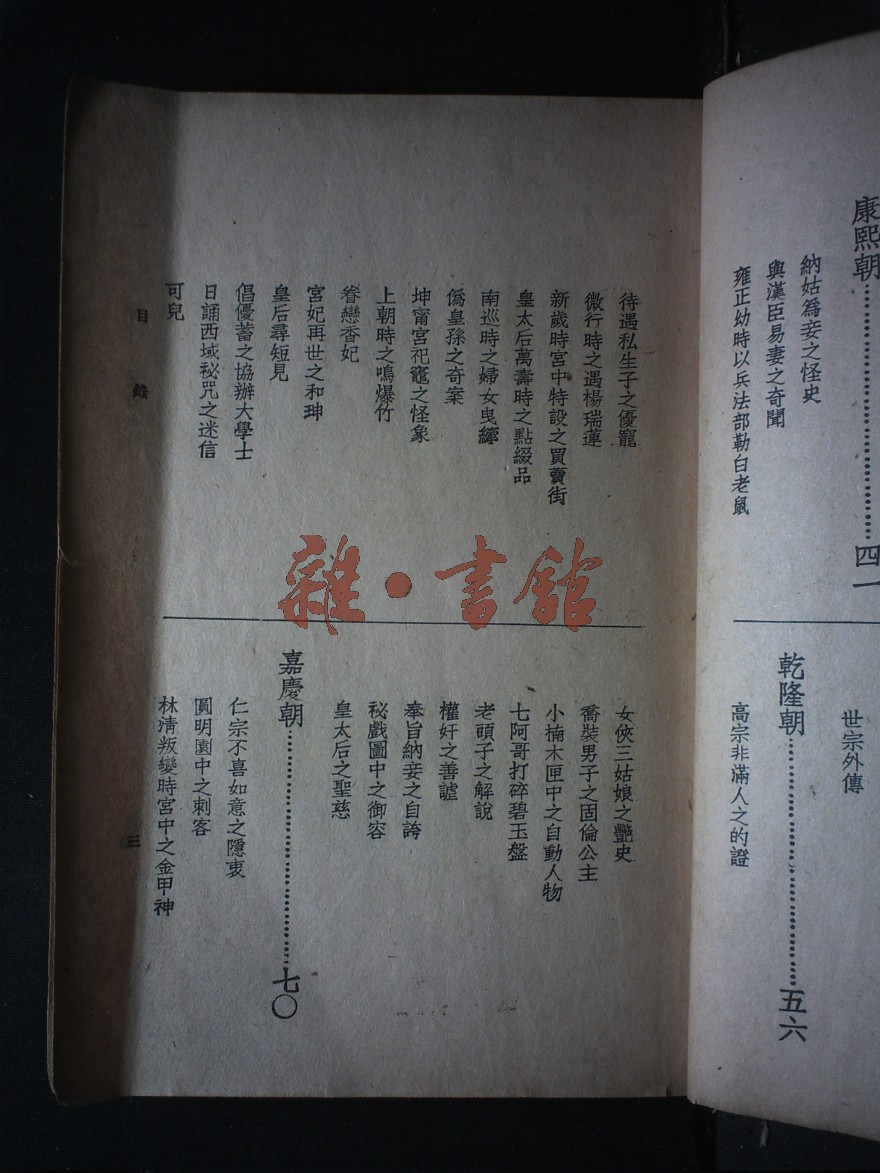 康熙朝……四一
納姑爲妾之怪史
與漢臣易妻之奇聞
雍正幼時以兵法部勒白老鼠
世宗外傳
乾隆朝……五六
高宗非滿人之的證
待遇私生子之優寵
微行時之遇楊瑞蓮
新歲時宮中特設之買賣街
皇太后萬壽時之點綴品
南巡時之婦女曳縴
僞皇孫之奇案
坤甯宮祀竈之怪象
上朝時之鳴爆竹
眷戀香妃
宮妃再世之和珅
皇后尋短見
倡優蓄之協辦大學士
日誦西域秘咒之迷信
可兒
女俠三姑娘之艷史
喬裝男子之固倫公主
小楠木匣中之自動人物
七阿哥打碎碧玉盤
老頭子之解說
權奸之善謔
奉旨納妾之自誇
秘戲圖中之御容
皇太后之聖慈
嘉慶朝……七〇
仁宗不喜如意之隱衷
圓明園中之刺客
林清叛變時宮中之金甲神
目錄
三
雜·書館